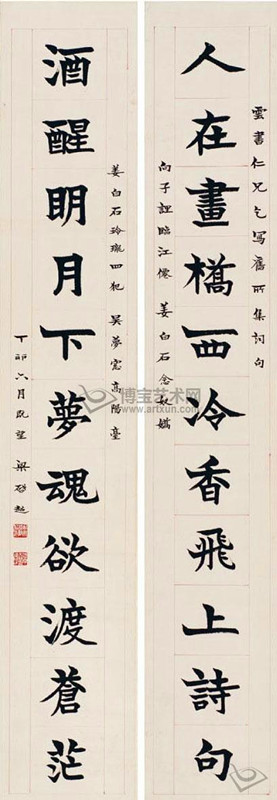 雲書仁兄乞寫舊所集詞句
人在畫橋西冷香飛上詩句
向子諲臨江僊 姜白石念奴嬌
姜白石玲瓏四犯 吳夢窗高陽臺
酒醒明月下夢魂欲渡蒼茫
丁卯六月既望 梁啓超
博宝艺术网
www.artxun.com